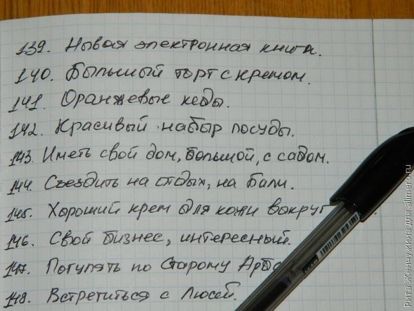 139. Новая электронная книга.
140. Большый торт с кремом.
141. Оранжевые кеды.
142. Красивый набыр посуды.
143. Иметь свой дом, большой, с садом.
144. Съездить на отдых, на Бали.
145. Хороший крем для кожи вокруг
146. Свой бизнес, интересный.
147. Погулять по Старому Арба
148. Встретиться с Люсей.